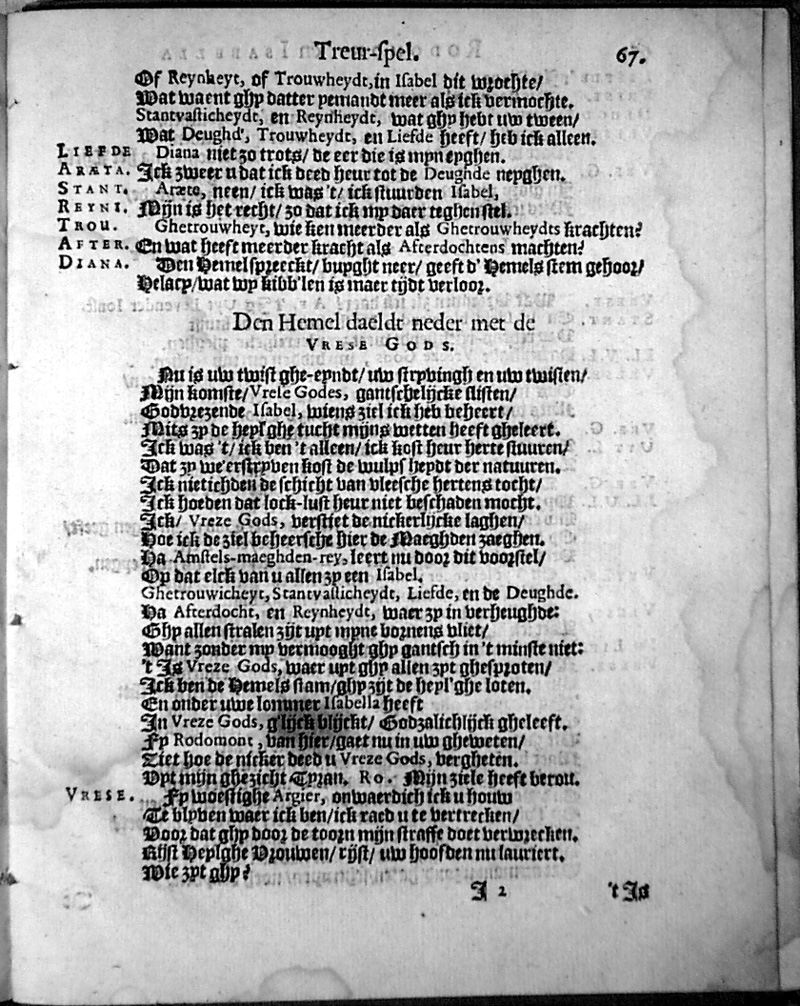 Treur-spel. 67.
Of Reynheyt, of Trouwheydt, in Isabel dit wrochte/
Wat waent ghy datter yemandt meer als ick vermochte.
Stantvasticheydt, en Reynheydt, wat ghy hebt uw tween/
Wat Deughd', Trouwheydt, en Liefde heeft/ heb ick alleen.
LIEFDE Diana niet zo trots/ de eer die is myn eyghen.
ARÆTA. Ick zweer u dat ick deed heur tot de Deughde neyghen.
STANT. Aræte, neen/ ick was 't/ ick stuurden Isabel,
REYNI. Mijn is het recht/ zo dat ick my daer teghen stel.
TROU. Ghetrouwheyt, wie ken meerder als Ghetrouwheydts krachten?
AFTER. En wat heeft meerder kracht als Afterdochtens machten?
DIANA. Den Hemel spreeckt/ buyght neer/ geeft d' Hemels stem gehoor/
Helacy/ wat wy kibb'len is maer tijdt verloor.
Den Hemel daeldt neder met de
VRESE GODS.
Nu is uw twist ghe-eyndt/ uw stryvingh en uw twisten/
Mijn komste/ Vrese Godes, gantschelijcke slisten/
Godvrezende Isabel, wiens ziel ick heb beheert/
Mits zy de heyl'ghe tucht mijns wetten heeft gheleert.
Ick was 't/ ick ben 't alleen/ ick kost heur herte stuuren/
Dat zy we'erstryven kost de wulpsheydt der natuuren.
Ick nietichden de schicht van vleesche hertens tocht/
Ick hoeden dat lock-lust heur niet beschaden mocht.
Ick/ Vreze Gods, verstiet de nickerlijcke laghen/
Hoe ick de ziel beheersche hier de Maeghden zaeghen.
Ha Amstels-maeghden-rey, leert nu door dit voorstel/
Op dat elck van u allen zy een Isabel.
Ghetrouwicheyt, Stantvasticheydt, Liefde, en de Deughde.
Ha Afterdocht, en Reynheydt, waer zy in verheughde:
Ghy allen stralen zijt uyt myne bornens vliet/
Want zonder my vermooght ghy gantsch in 't minste niet:
't Is Vreze Gods, waer uyt ghy allen zyt ghesproten/
Ick ben de Hemels stam/ ghy zijt de heyl'ghe loten.
En onder uwe lommer Isabella heeft
In Vreze Gods, g'lijck blijckt/ Godzalichlijck gheleeft.
Fy Rodomont, van hier/ gaet nu in uw gheweten/
Ziet hoe de nicker deed u Vreze Gods, vergheten.
Uyt mijn ghezicht Tyran. RO. Mijn ziele heeft berou.
VRESE. Fy woestighe Argier, onwaerdich ick u houw
Te blyven waer ick ben/ ick raed u te vertrecken/
Voor dat ghy door de toorn mijn straffe doet verwrecken.
Rijst Heylghe Vrouwen/ rijst/ uw hoofden nu lauriert.
Wie zyt ghy?
I 2 't Is